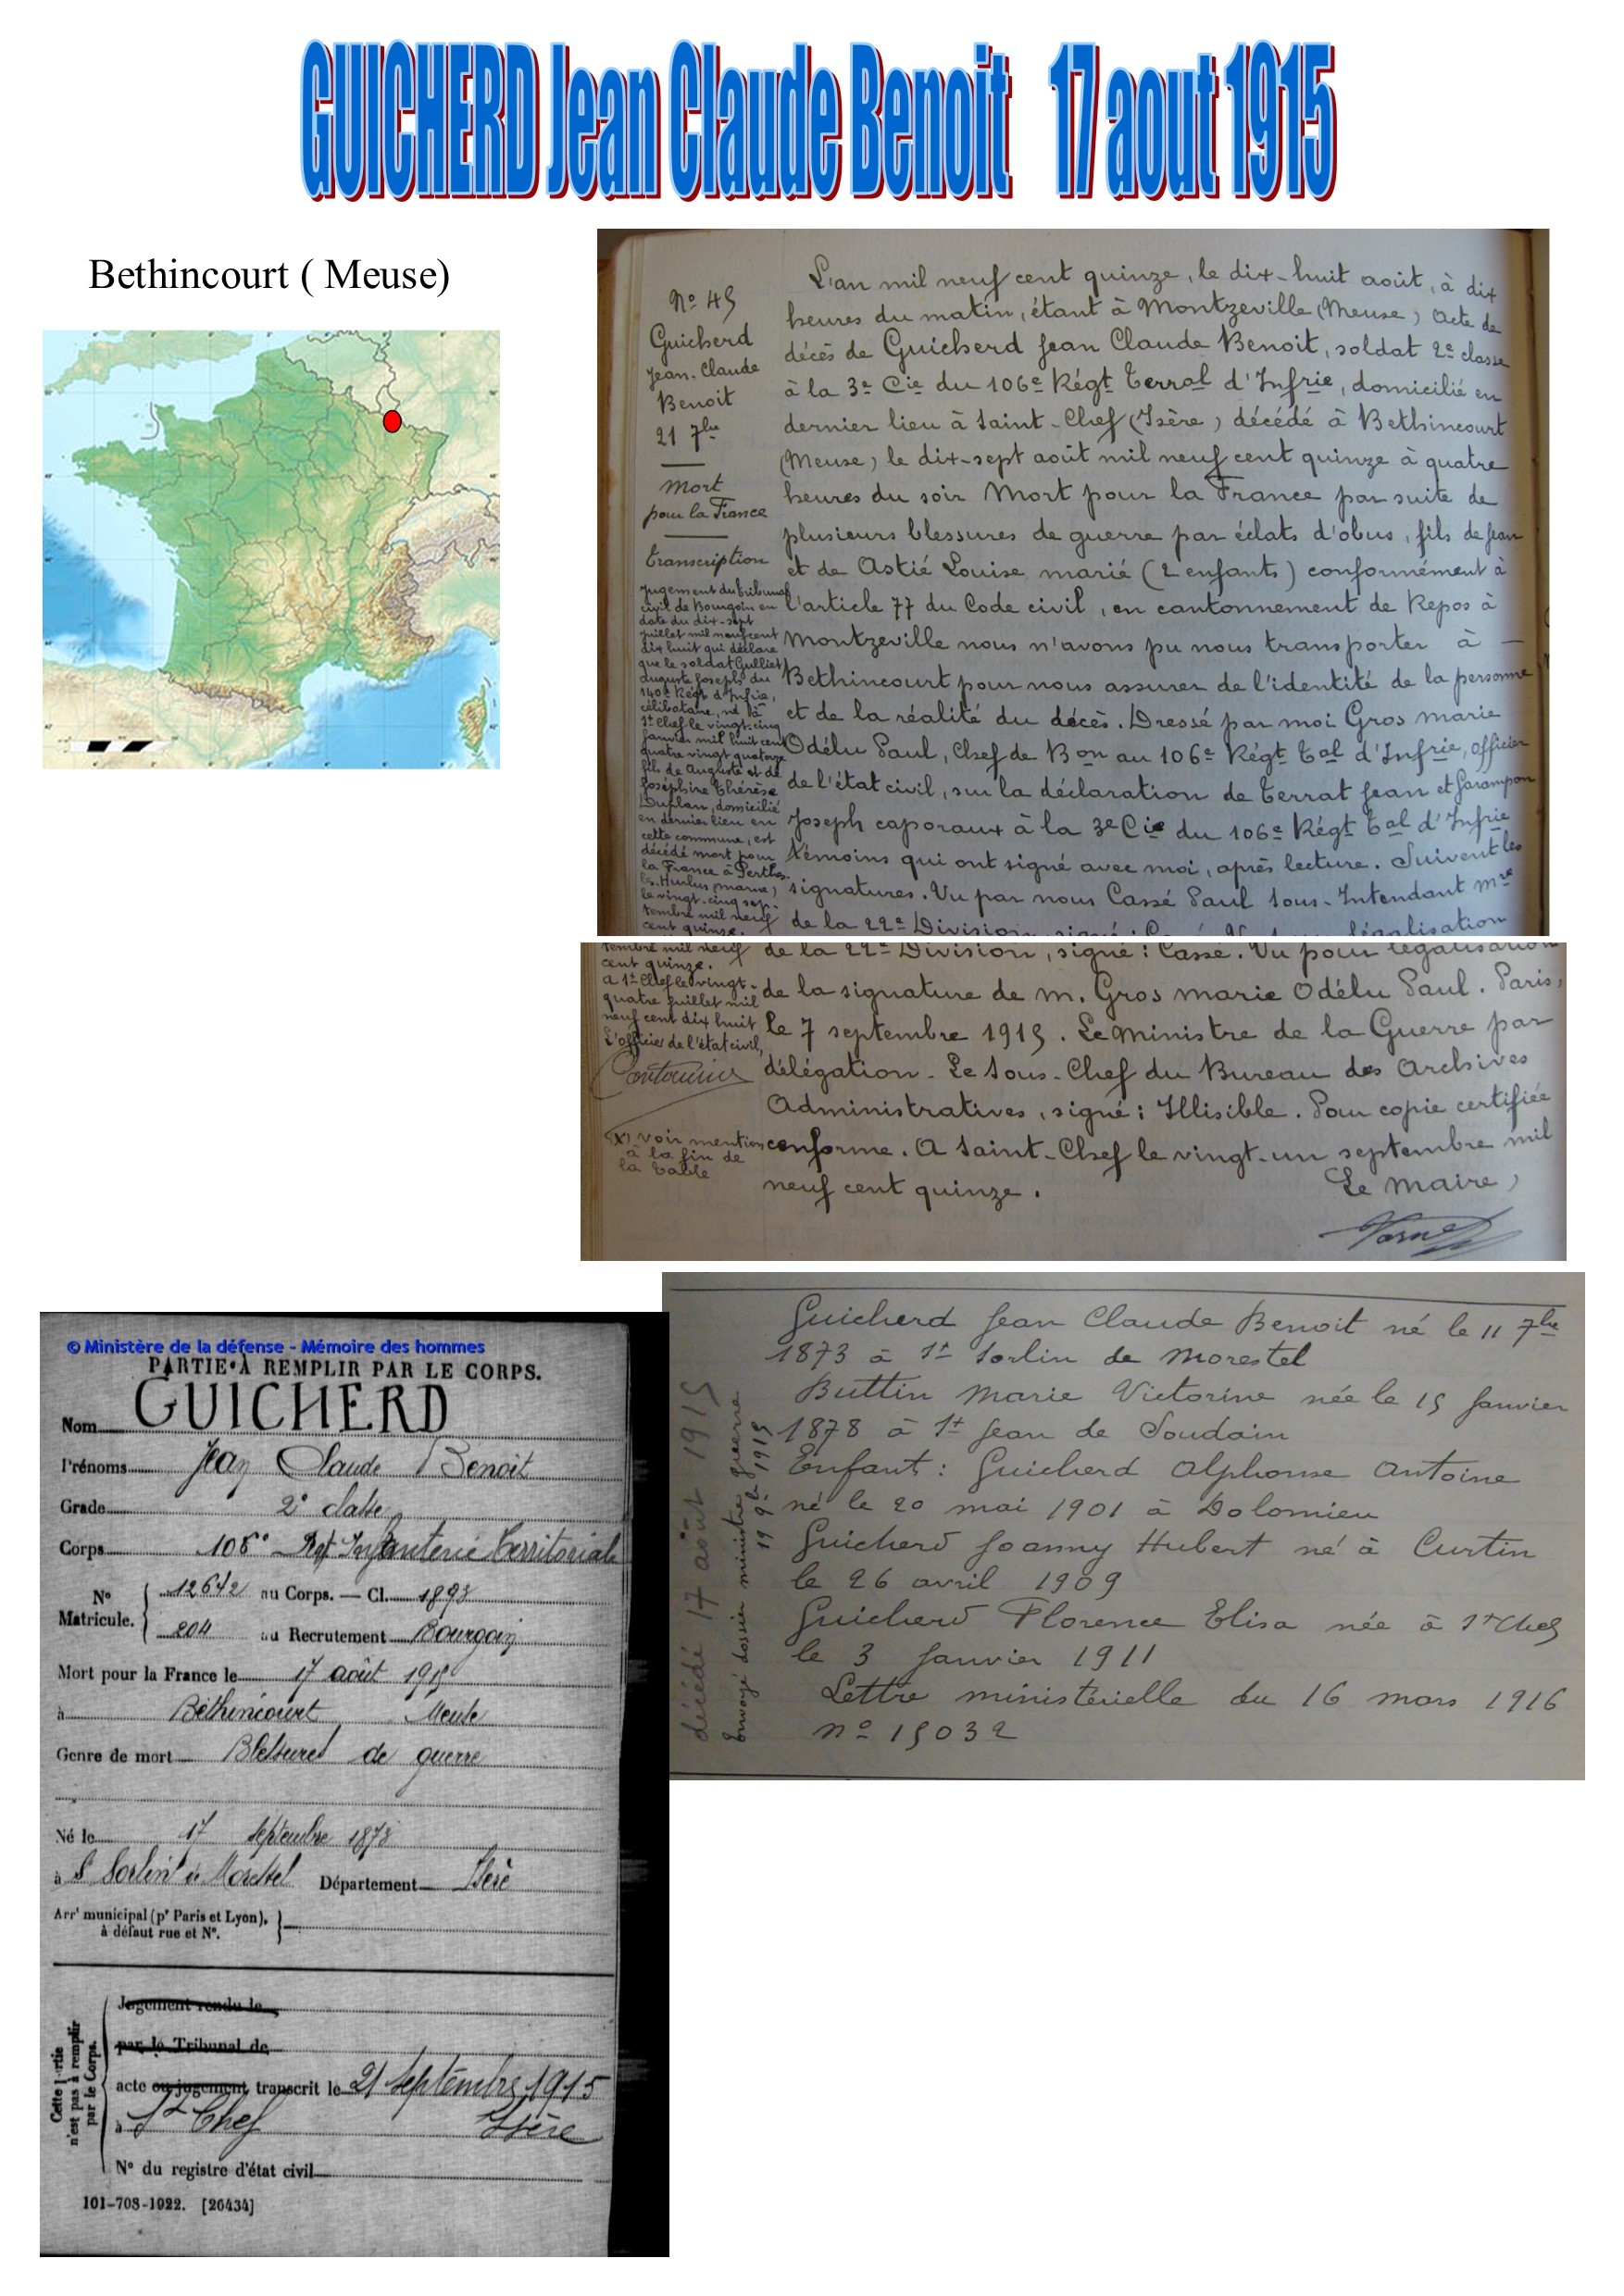 GUICHERD Jean Claude Benoit 17 aout 1915
Bethincourt ( Meuse)
N° 45
Guicherd
Jean-Claude
Benoit
21 7bre
Mort
pour la France
Transcription
Jugement du tribunal
civil de Bourgoin en
date du dix-sept
juillet mil neuf cent
dix huit qui déclare
que le soldat Gulliet
Auguste Joseph du
140e Régt d'Infrie,
célibataire, né à
St Chef le vingt-cinq
janvier mil huit cent
quatre vingt quatorze
fils de Auguste et de
Joséphine Thérèse
Durlan, domicilié
en dernier lieu en
cette commune, est
décédé mort pour
la France à Perthes-
les-Hurlus (Marne)
le vingt-cinq sep-
tembre mil neuf
cent quinze.
L'an mil neuf cent quinze, le dix-huit août, à dix
heures du matin, étant à Montzeville (Meuse) Acte de
décès de Guicherd Jean Claude Benoit, soldat 2e classe
à la 3e Cie du 106e Régt Terral d'Infrie, domicilié en
dernier lieu à Saint-Chef (Isère) décédé à Bethincourt
(Meuse) le dix-sept août mil neuf cent quinze à quatre
heures du soir Mort pour la France par suite de
plusieurs blessures de guerre par éclats d'obus, fils de Jean
et de Astié Louise marié (2 enfants) conformément à
l'article 77 du Code civil, en cantonnement de Repos à
Montzeville nous n'avons pu nous transporter à —
Bethincourt pour nous assurer de l'identité de la personne
et de la réalité du décès. Dressé par moi Gros Marie
Odélu Paul, Chef de Bon au 106e Régt Tal d'Infrie, officier
de l'état civil, sur la déclaration de Terrat Jean et Garampon
Joseph caporaux à la 3e Cie du 106e Régt Tal d'Infrie
témoins qui ont signé avec moi, après lecture. Suivent les
signatures. Vu par nous Cassé Paul Sous-Intendant Mre
de la 22e Division, signé : légalisation
tembre mil neuf
cent quinze.
A St Chef le vingt-
quatre juillet mil
neuf cent dix huit
L'officier de l'état civil,
(x) voir mention
à la fin de
la table
de la 22e Division, signé : Cassé. Vu pour légalisation
de la signature de M. Gros Marie Odélu Paul. Paris,
le 7 septembre 1915. Le Ministre de la Guerre par
délégation - Le Sous-Chef du Bureau des Archives
Administratives, signé : Illisible. Pour copie certifiée
conforme. A Saint-Chef le vingt-un septembre mil
neuf cent quinze. Le Maire,
© Ministère de la défense - Mémoire des hommes
PARTIE À REMPLIR PAR LE CORPS.
Nom GUICHERD
Prénoms Jean Claude Benoit
Grade 2e classe
Corps 106e Rgt Infanterie Territoriale
N° Matricule. 12642 au Corps. — Cl. 1893
204 au Recrutement Bourgoin
Mort pour la France le 17 août 1915
à Béthincourt Meuse
Genre de mort Blessures de guerre
Né le 17 septembre 1873
à St Sorlin de Morestel Département Isère
Arrt municipal (pr Paris et Lyon),
à défaut rue et N°.
Cette partie
n'est pas à remplir
par le Corps.
Jugement rendu le
par le Tribunal de
acte ou jugement transcrit le 21 Septembre 1915
à St Chef Isère
N° du registre d'état civil
101-708-1922. [26434]
décédé 17 août 1915
Envoyé dossier ministre guerre
19 9b 1915
Guicherd Jean Claude Benoit né le 11 7bre
1873 à St Sorlin de Morestel
Buttin Marie Victorine née le 15 Janvier
1878 à St Jean de Soudain
Enfant : Guicherd Alphonse Antoine
né le 20 mai 1901 à Dolomieu
Guicherd Joanny Hubert né à Curtin
le 26 avril 1909
Guicherd Florence Elisa née à St Chef
le 3 Janvier 1911
Lettre ministérielle du 16 mars 1916
n° 15032